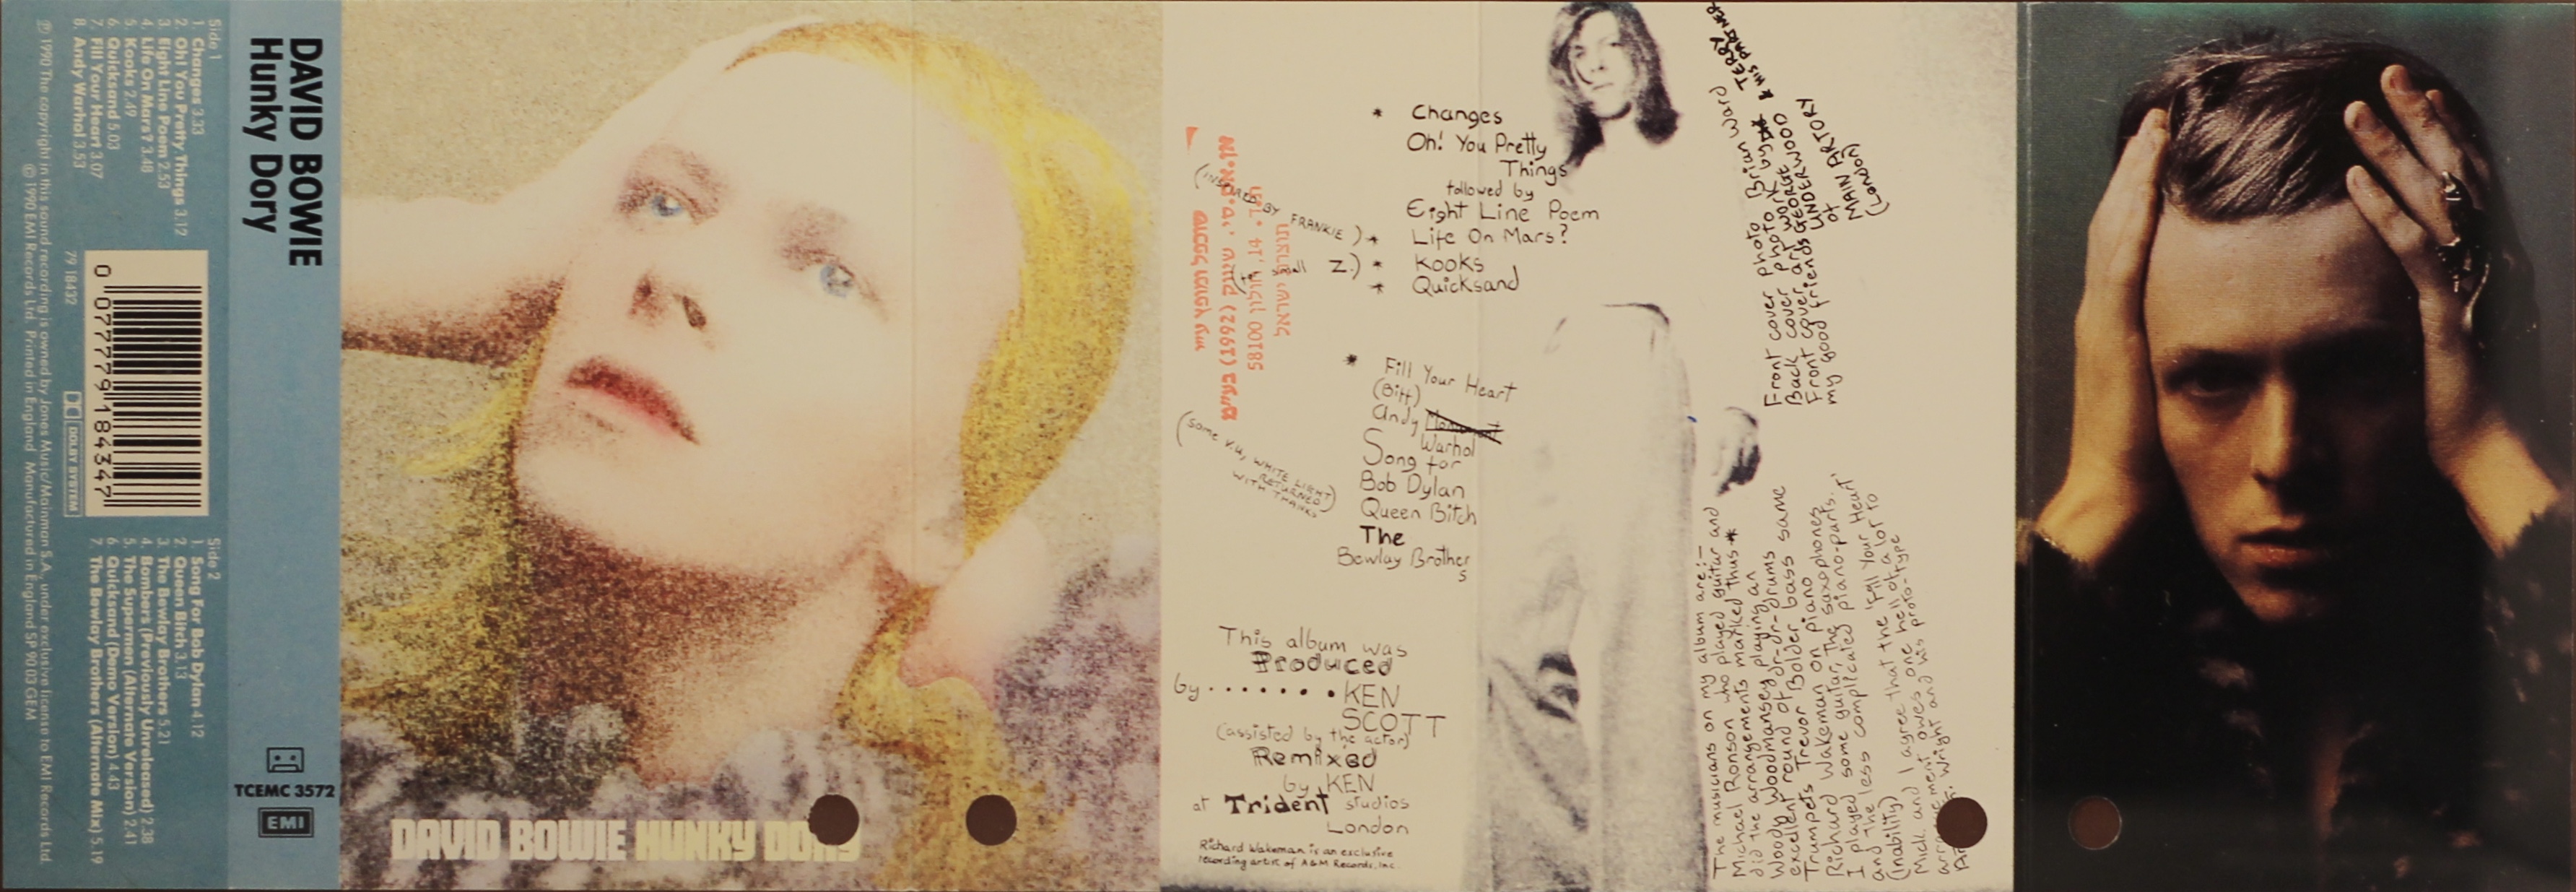 Side 1
1. Changes 3.33
2. Oh! You Pretty Things 3.12
3. Eight Line Poem 2.53
4. Life On Mars? 3.48
5. Kooks 2.49
6. Quicksand 5.03
7. Fill Your Heart 3.07
8. Andy Warhol 3.53
Side 2
1. Song For Bob Dylan 4.12
2. Queen Bitch 3.13
3. The Bewlay Brothers 5.21
4. Bombers (Previously Unreleased) 2.38
5. The Supermen (Alternate Version) 2.41
6. Quicksand (Demo Version) 4.43
7. The Bewlay Brothers (Alternate Mix) 5.19
0 077779 184347
79 18432
DOLBY SYSTEM
℗ 1990 The copyright in this sound recording is owned by Jones Music/Mainman S.A. under exclusive license to EMI Records Ltd.
© 1990 EMI Records Ltd. Printed in England Manufactured in England SP 90 03 GEM
DAVID BOWIE
Hunky Dory
TCEMC 3572
EMI
DAVID BOWIE HUNKY DORY
* Changes
Oh! You Pretty
Things
followed by
Eight Line Poem
(INSPIRED BY FRANKIE) * Life On Mars?
small Z.) * Kooks
* Quicksand
* Fill Your Heart
(Biff)
Andy
Warhol
Song for
Bob Dylan
(some V.U, WHITE LIGHT
RETURNED
WITH THANKS)
Queen Bitch
The
Bewlay Brother
s
This album was
Produced
by ....... KEN
SCOTT
(assisted by the actor)
Remixed
by KEN
at Trident studios
London
Richard Wakeman is an exclusive
recording artist of A&M Records, Inc.
אן.אם.סי. שיווק (1992) בע"מ
14, חולון 58100
תוצרת ישראל
Front cover photo Brian Ward
Back cover photo by & TERRY
& HIS PARTNER
Front cover art work
my good friends GEORGE
UNDERWOOD
of
MAIN ARTORY
(London)
The musicians on my album are:—
Michael Ronson who played guitar and
did the arrangements marked thus *
Woody Woodmansey playing an
excellent round of dr-dr-drums
Trumpets Trevor Bolder bass same
Richard Wakeman on piano
I played some guitar, the saxophones
and the less complicated piano-parts.
(inability)
Mick and I agree that the 'Fill Your Heart'
arrangement owes one hell of a lot to
Wright and his proto-type